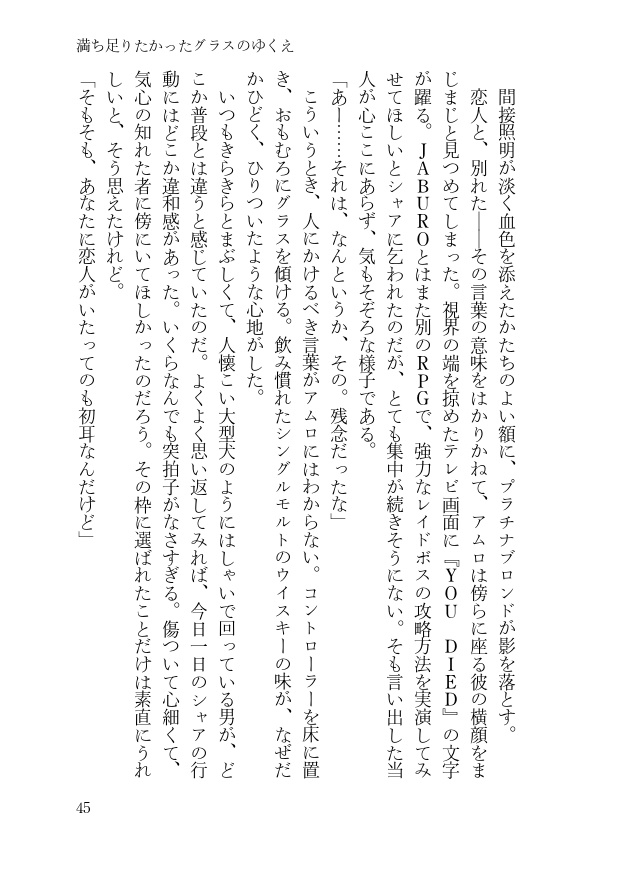 満ち足りたかったグラスのゆくえ
　間接照明が淡く血色を添えたかたちのよい額に、プラチナブロンドが影を落とす。
　恋人と、別れた――その言葉の意味をはかりかねて、アムロは傍らに座る彼の横顔をま
じまじと見つめてしまった。視界の端を掠めたテレビ画面に『ＹＯＵ　ＤＩＥＤ』の文字
が躍る。ＪＡＢＵＲＯとはまた別のＲＰＧで、強力なレイドボスの攻略方法を実演してみ
せてほしいとシャアに乞われたのだが、とても集中が続きそうにない。そも言い出した当
人が心ここにあらず、気もそぞろな様子である。
「あー……それは、なんというか、その。残念だったな」
　こういうとき、人にかけるべき言葉がアムロにはわからない。コントローラーを床に置
き、おもむろにグラスを傾ける。飲み慣れたシングルモルトのウイスキーの味が、なぜだ
かひどく、ひりついたような心地がした。
　いつもきらきらとまぶしくて、人懐こい大型犬のようにはしゃいで回っている男が、ど
こか普段とは違うと感じていたのだ。よくよく思い返してみれば、今日一日のシャアの行
動にはどこか違和感があった。いくらなんでも突拍子がなさすぎる。傷ついて心細くて、
気心の知れた者に傍にいてほしかったのだろう。その枠に選ばれたことだけは素直にうれ
しいと、そう思えたけれど。
「そもそも、あなたに恋人がいたってのも初耳なんだけど」
45